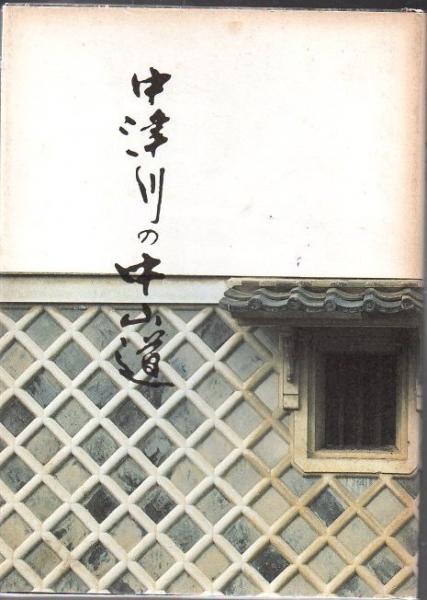 中津川の中山道